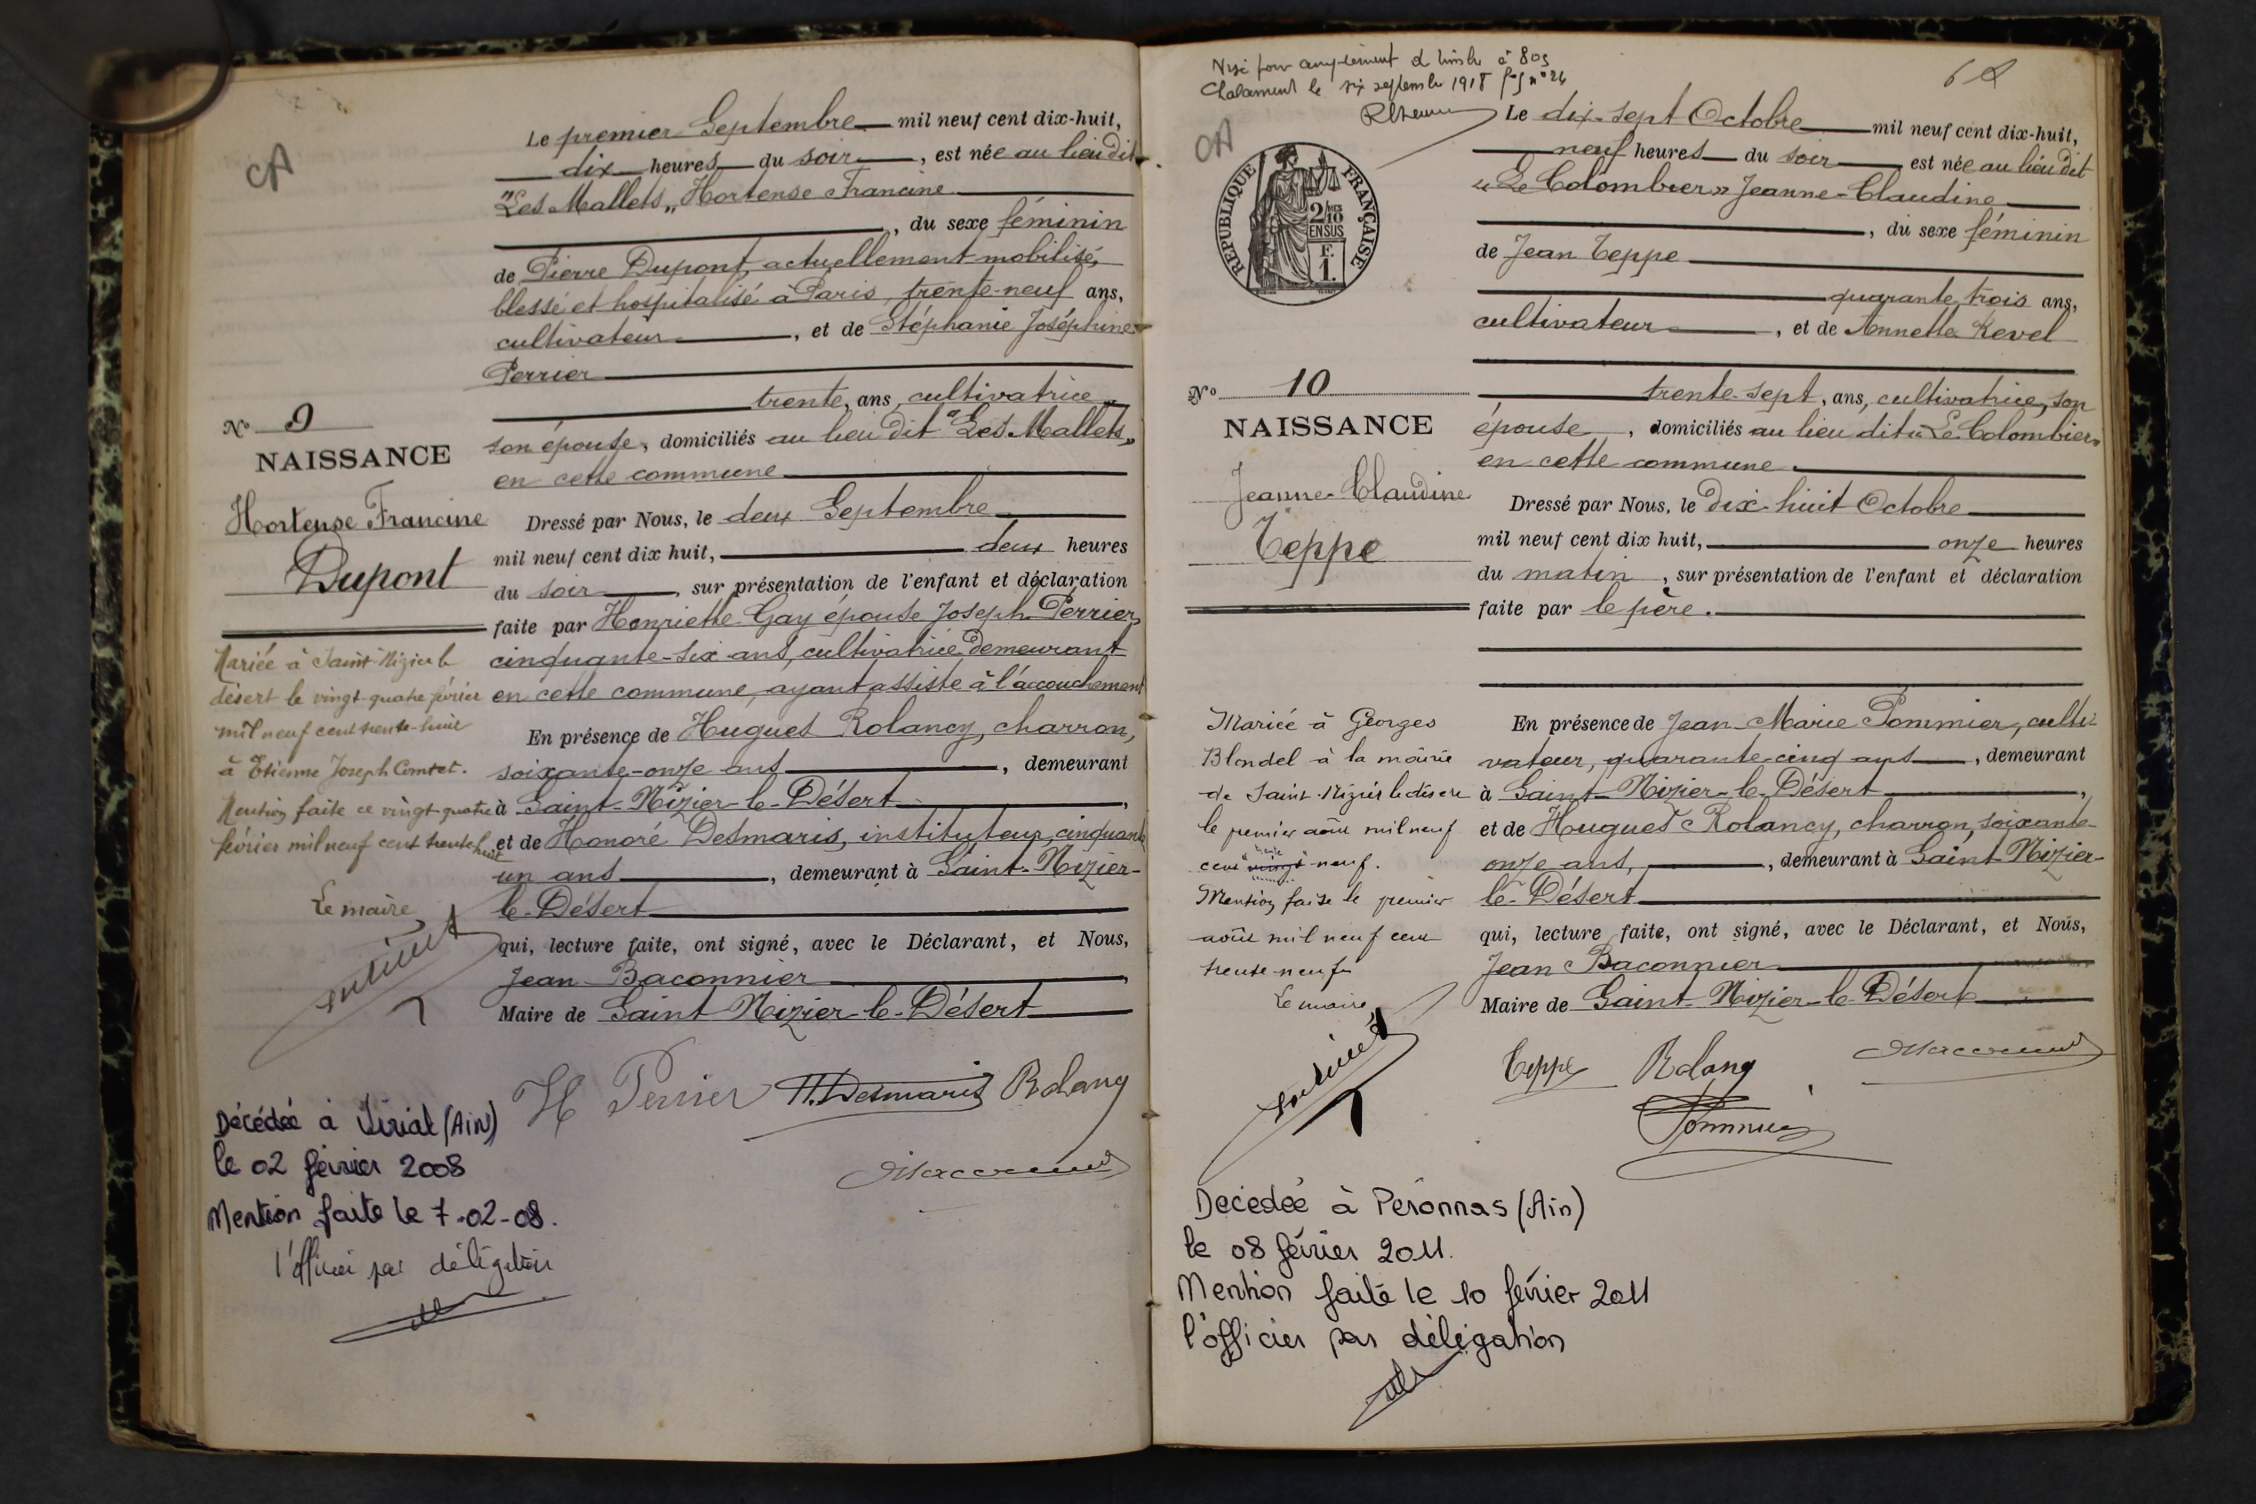 CA
Le premier Septembre mil neuf cent dix-huit,
dix heures du soir, est née au lieu dit
"Les Mallets" Hortense Francine
, du sexe féminin
de Pierre Dupont, actuellement mobilisé,
blessé et hospitalisé à Paris, trente-neuf ans,
cultivateur, et de Stéphanie Joséphine
Perrier
trente, ans, cultivatrice,
son épouse, domiciliés au lieu dit "Les Mallets"
en cette commune
Dressé par Nous, le deux Septembre
mil neuf cent dix huit, deux heures
du soir, sur présentation de l'enfant et déclaration
faite par Henriette Gay épouse Joseph Perrier,
cinquante-six ans, cultivatrice demeurant
en cette commune, ayant assisté à l'accouchement
En présence de Hugues Rolancy, charron,
soixante-onze ans, demeurant
à Saint-Nizier-le-Désert,
et de Honoré Desmaris, instituteur, cinquante
un ans, demeurant à Saint-Nizier-
le-Désert
qui, lecture faite, ont signé, avec le Déclarant, et Nous,
Jean Baconnier,
Maire de Saint-Nizier-le-Désert
H Perrier H. Desmaris Rolancy
No 9
NAISSANCE
Hortense Francine
Dupont
Mariée à Saint-Nizier le
désert le vingt-quatre février
mil neuf cent trente-huit
à Etienne Joseph Comtet.
Mention faite ce vingt-quatre
février mil neuf cent trente huit
Le maire,
Décédée à Viriat (AiN)
le 02 février 2008
Mention faite le 7-02-08.
l'officier par délégation
Visé pour complément de timbre à 80s
Chalamont le six septembre 1918 f° 5 n° 26
CA
REPUBLIQUE FRANÇAISE
2/10
EN SUS
F.
1.
Le dix-sept Octobre mil neuf cent dix-huit,
neuf heures du soir est née au lieu dit
"Le Colombier" Jeanne-Claudine
, du sexe féminin
de Jean Teppe
quarante trois ans,
cultivateur, et de Annette Revel
trente-sept, ans, cultivatrice, son
épouse, domiciliés au lieu dit "Le Colombier"
en cette commune.
Dressé par Nous, le Dix-huit Octobre
mil neuf cent dix huit, onze heures
du matin, sur présentation de l'enfant et déclaration
faite par le père.
En présence de Jean-Marie Pommier, culti-
vateur, quarante-cinq ans, demeurant
à Saint-Nizier-le-Désert,
et de Hugues Rolancy, charron, soixante-
onze ans, demeurant à Saint-Nizier-
le-Désert
qui, lecture faite, ont signé, avec le Déclarant, et Nous,
Jean Baconnier
Maire de Saint-Nizier-le-Désert
Teppe Rolancy
Pommier
No 10
NAISSANCE
Jeanne-Claudine
Teppe
Mariée à Georges
Blondel à la mairie
de Saint-Nizier le désert
le premier août mil neuf
cent trente vingt-neuf.
Mention faite le premier
août mil neuf cent
trente-neuf
Le maire,
Décédée à Péronnas (Ain)
le 08 février 2011.
Mention faite le 10 février 2011
l'officier par délégation